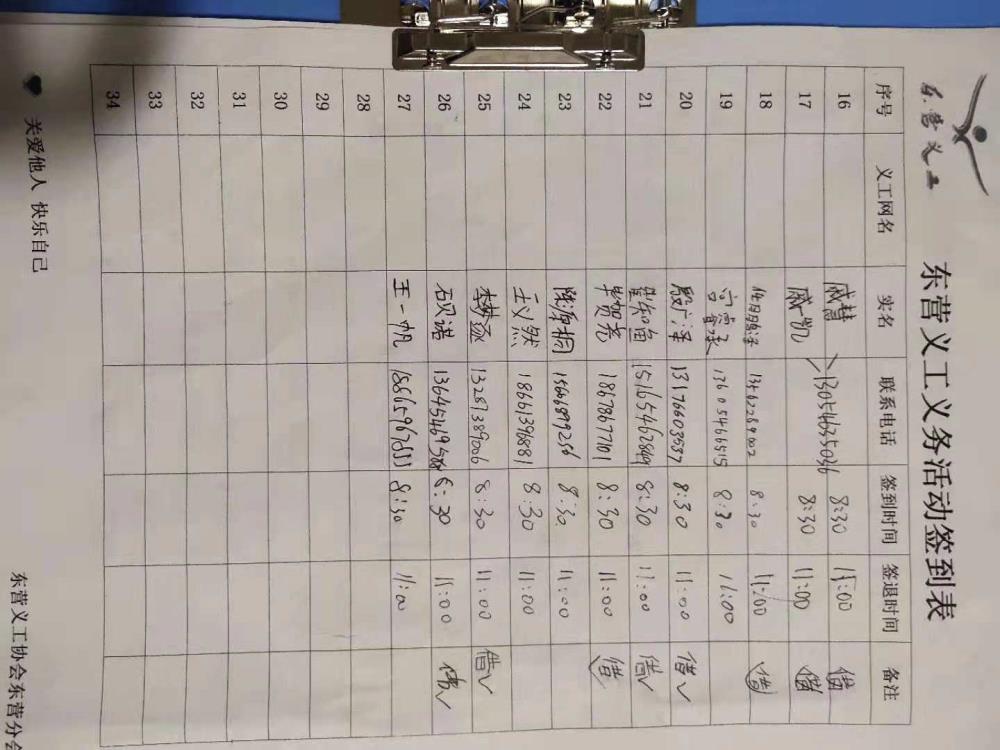 东营义工
东营义工义务活动签到表
序号 义工网名 实名 联系电话 签到时间 签退时间 备注
16 戚慧 13054635036 8:30 11:00 借
17 戚凯 8:30 11:00 借
18 8:30 11:00 借
19 13605466515 8:30 11:00
20 殷广泽 13176603537 8:30 11:00 借√
21 8:30 11:00 借√
22 毕贺尧 18678677101 8:30 11:00 借
23 陈源桐 15666899256 8:30 11:00
24 王义然 18661396881 8:30 11:00
25 李梦丞 13287389006 8:30 11:00 借√
26 石贝诺 13645469586 8:30 11:00 借√
27 王一帆 8:30 11:00
28
29
30
31
32
33
34
关爱他人 快乐自己
东营义工协会东营分会